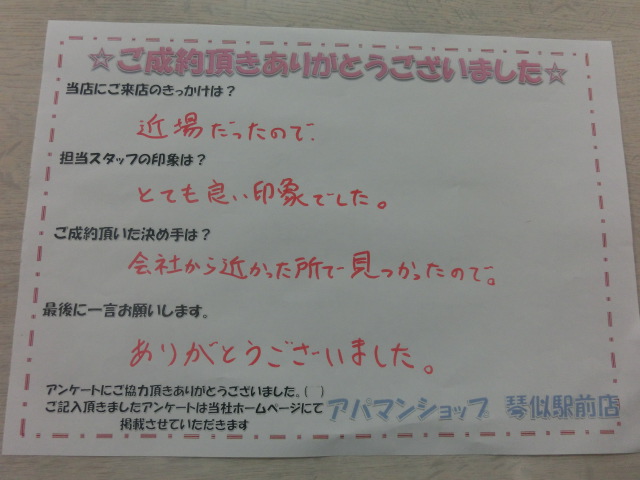 ☆ご成約頂きありがとうございました☆
当店にご来店のきっかけは？
近場だったので.
担当スタッフの印象は？
とても良い印象でした。
ご成約頂いた決め手は？
会社から近かった所で見つかったので。
最後に一言お願いします。
ありがとうございました。
アンケートにご協力頂きありがとうございました。( )
ご記入頂きましたアンケートは当社ホームページにて
掲載させていただきます
アパマンショップ 琴似駅前店